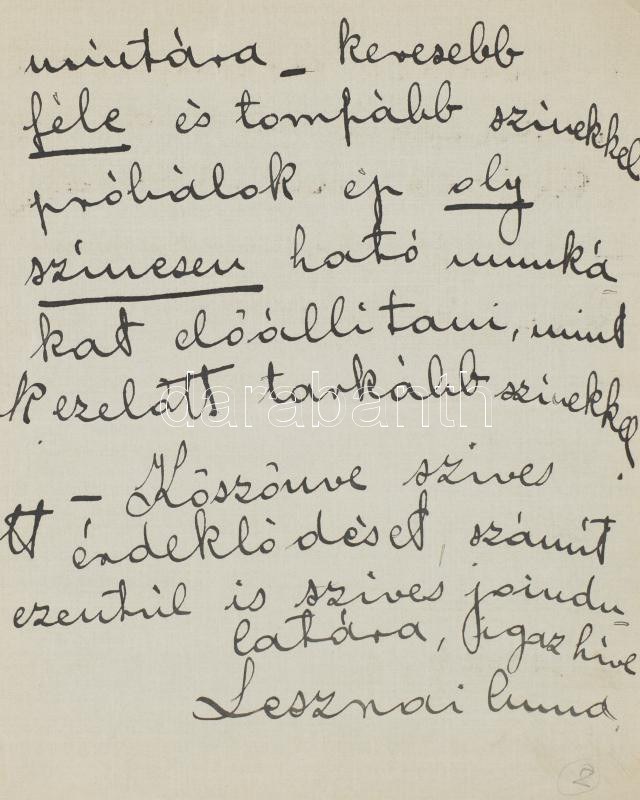 mintára _ kevesebb
féle és tompább szinekkel
próbálok ép oly
színesen ható munká
kat előállitani, mint
ezelőtt tarkább szinekkel.
– Köszönve szives
érdeklődését, számít
ezentúl is szives joindu=
latára, igaz hive
Lesznai Anna
2
darabanth